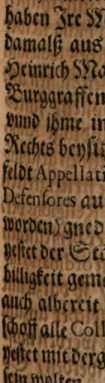 haben Ire
damalß aus
Heinrich
Burggraffen
vund ihme in
Rechts beysti
feldt Appellati
Defensores au
worden gned
nestet der
billigkeit gem
auch albereit
schoff alle Coll
nestet mit derg
sein wolten